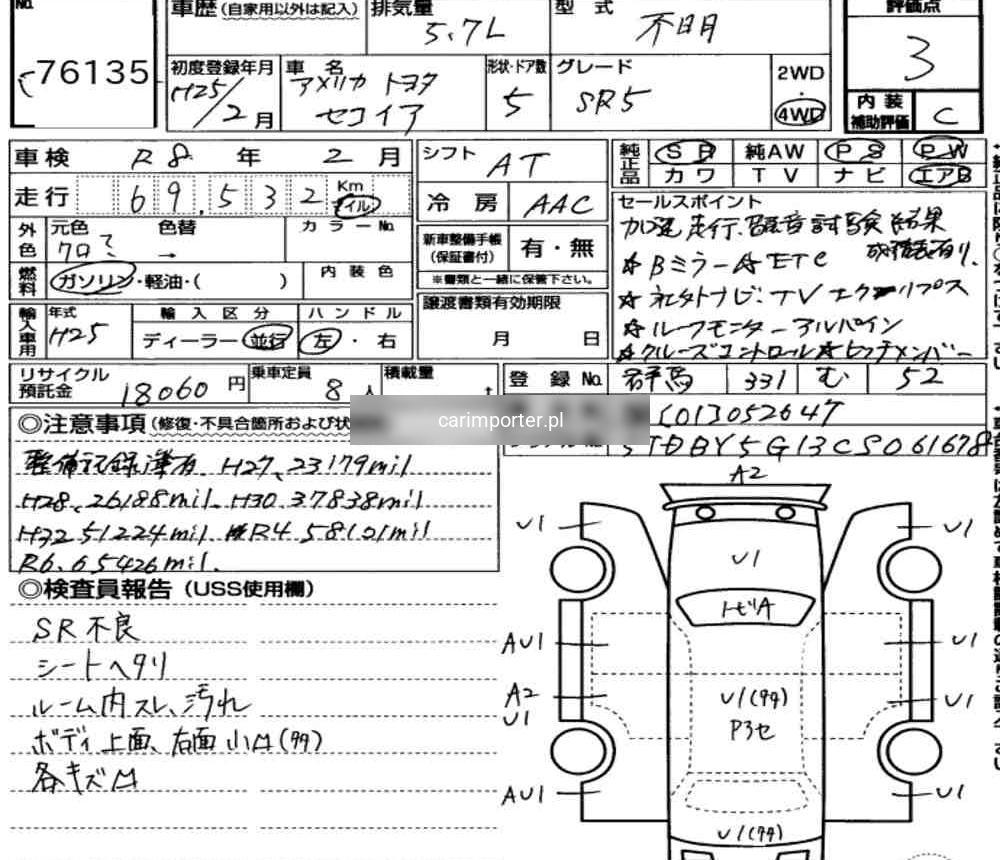 No.
76135
車歴(自家用以外は記入)
排気量
5.7L
型式
不明
評価点
3
初度登録年月
H25/2月
車名
アメリカ トヨタ
セコイア
形状・ドア数
5
グレード
SR5
2WD
・
4WD
内装
補助評価
C
車検 R8年 2月
シフト
AT
純正品
SR 純AW PS PW
カワ TV ナビ エアB
走行 69,532
Km
マイル
冷房
AAC
セールスポイント
加速走行騒音試験結果
成績表有り、
☆Bミラー☆ETC
☆社外ナビ.TVエクリプス
☆ルーフモニターアルパイン
☆クルーズコントロール☆ヒッチメンバー
外色
元色
クロ
色替
カラーNo.
新車整備手帳
(保証書付)
有・無
※書類と一緒に保管下さい。
燃料
ガソリン・軽油・( )
内装色
輸入車用
年式
H25
輸入区分
ディーラー・並行
ハンドル
左・右
譲渡書類有効期限
月 日
リサイクル
預託金
18060円
乗車定員
8人
積載量
t
登録No.
群馬 331 む 52
carimporter.pl
C013052647
5TDBY5G13CS061678
◎注意事項(修復・不具合箇所および状
整備記録簿有、H27、23179mil
H28、26188mil、H30、37838mil
H32.51224mil R4.58101mil
R6.65426mil.
◎検査員報告(USS使用欄)
SR不良
シートヘタリ
ルーム内スレ、汚れ
ボディ上面、右面小凹(99)
各キズ凹
A2
U1
U1
U1
トビA
AU1
U1
A2
U1
U1(99)
P3セ
U1
AU1
U1
U1(99)